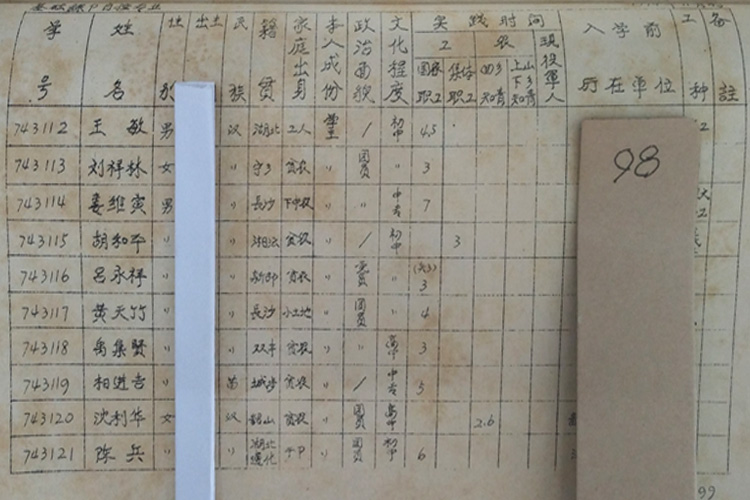 学号 姓名 性别 出生 民族 籍贯 家庭出身 本人成份 政治面貌 文化程度 实践时间 入学前所在单位 工种 备註
工 农 现役军人
国家职工 集体职工 回乡知青 上山下乡知青
743112 王敏 男 汉 湖北 工人 学生 / 初中 4.5
743113 刘祥林 女 〃 宁乡 贫农 〃 团员 〃 3
743114 姜维寅 男 〃 长沙 下中农 〃 〃 中专 7
743115 胡和平 〃 〃 贫农 〃 / 初中 3
743116 吕永祥 〃 〃 新邵 贫农 〃 党员 〃 3
743117 黄天竹 〃 〃 长沙 小土地 〃 团员 〃 4
743118 禹集贤 〃 〃 双丰 贫农 〃 〃 高中 3
743119 相进吉 〃 苗 城步 贫农 〃 / 中专 5
743120 沈利华 女 汉 韶山 贫农 〃 团员 高中 2.6
743121 陈兵 〃 〃 湖北 〃 团员 初中 6
98
99